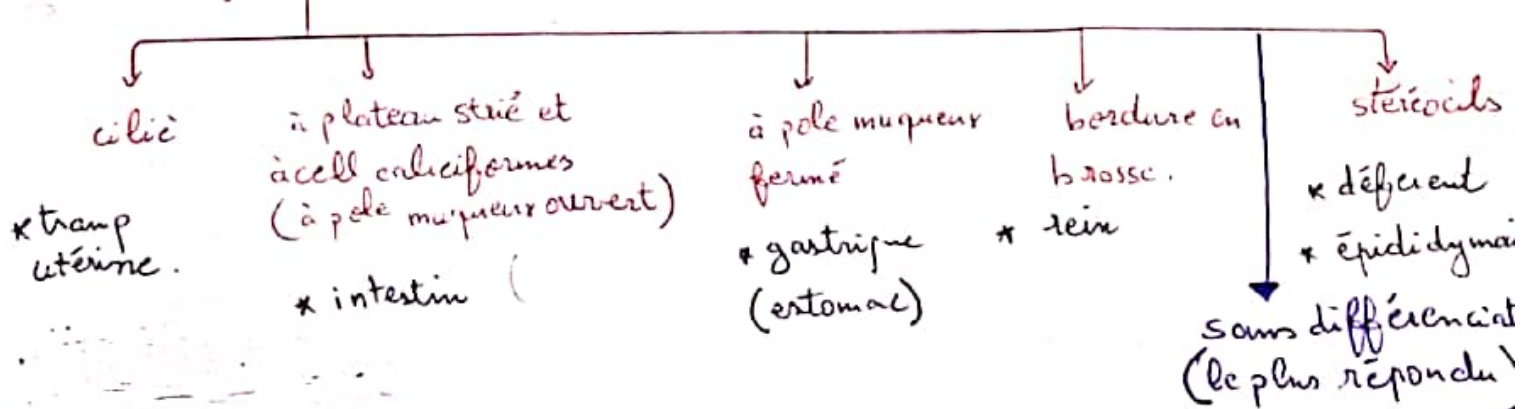 cilié
* tromp
utérine.
à plateau strié et
à cell caliciformes
(à pole muqueux ouvert)
* intestin (
à pole muqueux
fermé
* gastrique
(estomac)
bordure en
brosse.
* rein
stéréocils
* déférent
* épididymai
sans différenciat
(le plus répondu)